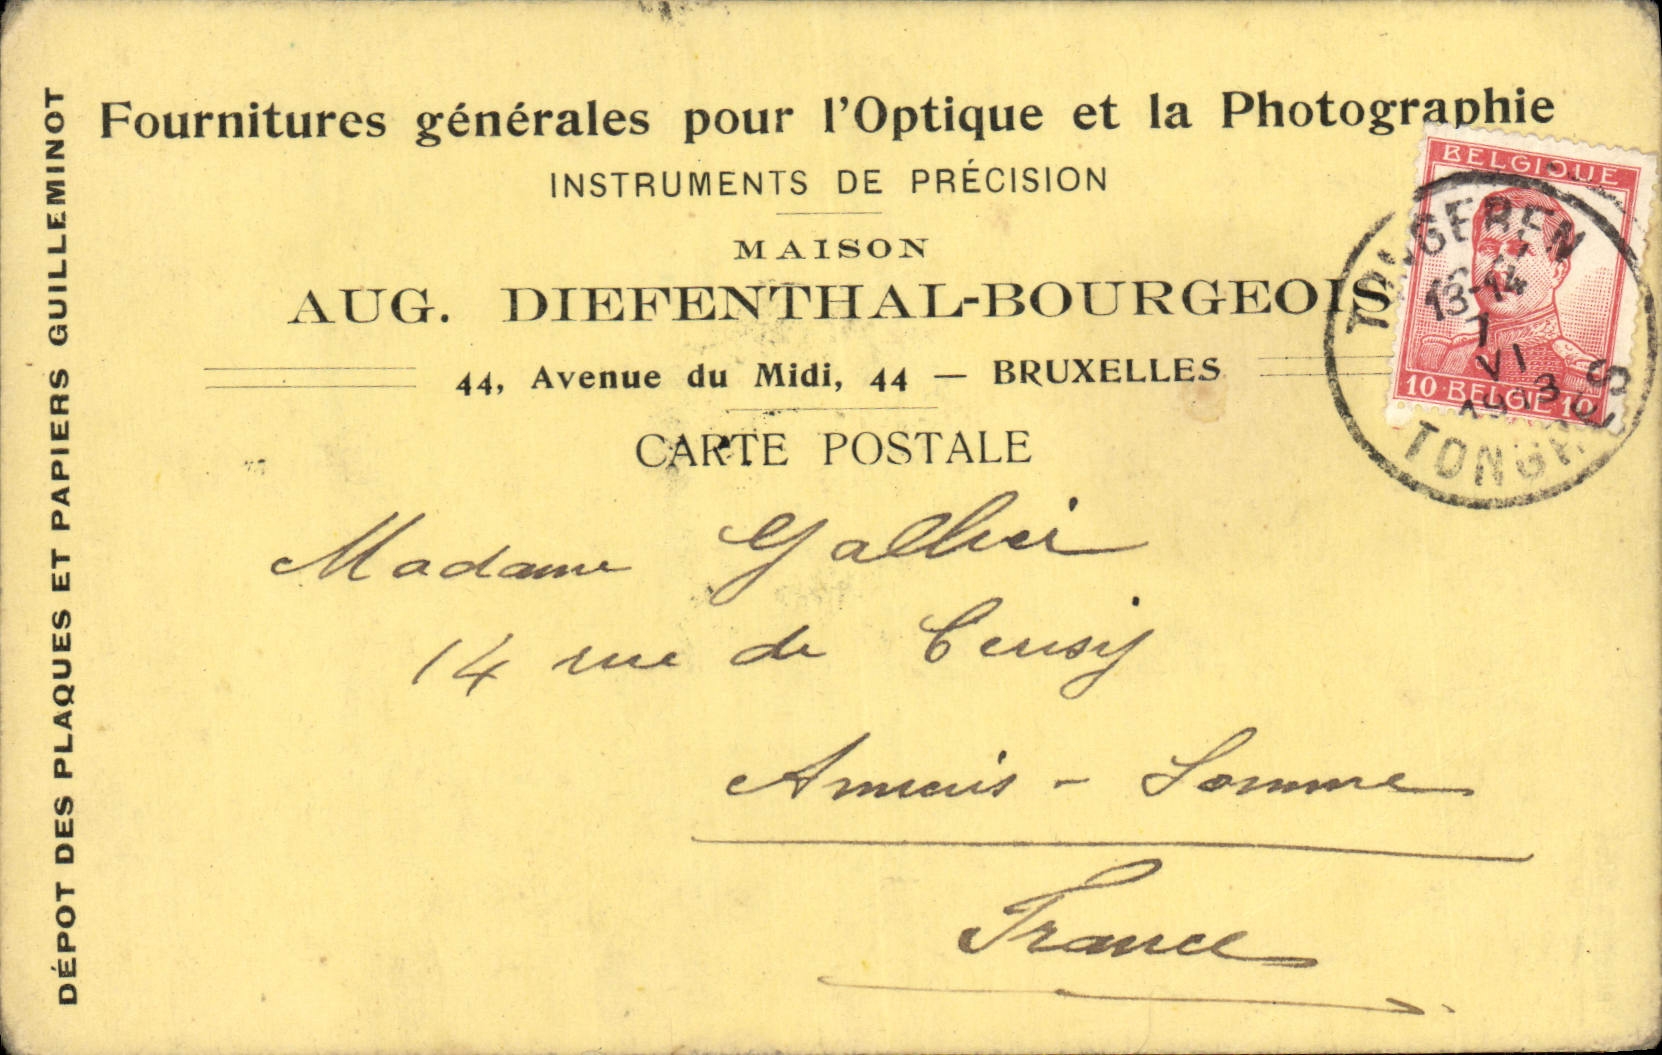 Fournitures générales pour l'Optique et la Photographie
INSTRUMENTS DE PRÉCISION
MAISON
AUG. DIEFENTHAL-BOURGEOIS
44, Avenue du Midi, 44 — BRUXELLES
CARTE POSTALE
DÉPOT DES PLAQUES ET PAPIERS GUILLEMINOT
BELGIQUE
10 BELGIË 10
TONGEREN
13-14
1
VI
1913
TONGRES
Madame
14 rue de
Amiens - Somme
France